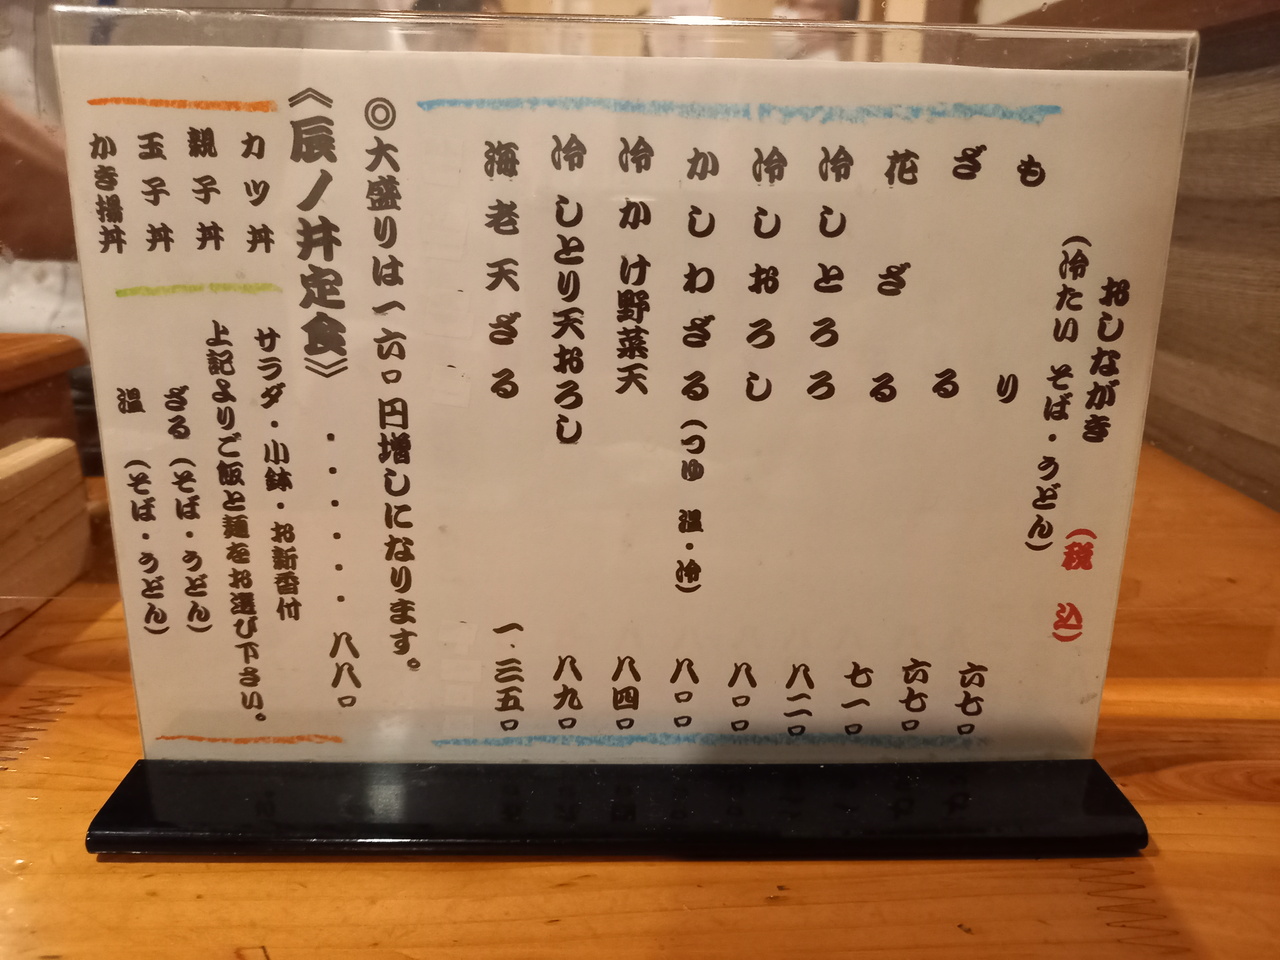 おしながき
(冷たい そば・うどん) (税込)
もり 六七〇
ざる 六七〇
花ざる 七一〇
冷しとろろ 八二〇
冷しおろし 八〇〇
かしわざる(つゆ 温・冷) 八〇〇
冷かけ野菜天 八四〇
冷しとり天おろし 八九〇
海老天ざる 一.三五〇
◎大盛りは一六〇円増しになります。
《辰ノ丼定食》・・・・・・・八八〇
サラダ・小鉢・お新香付
上記よりご飯と麺をお選び下さい。
ざる(そば・うどん)
温(そば・うどん)
カツ丼
親子丼
玉子丼
かき揚丼